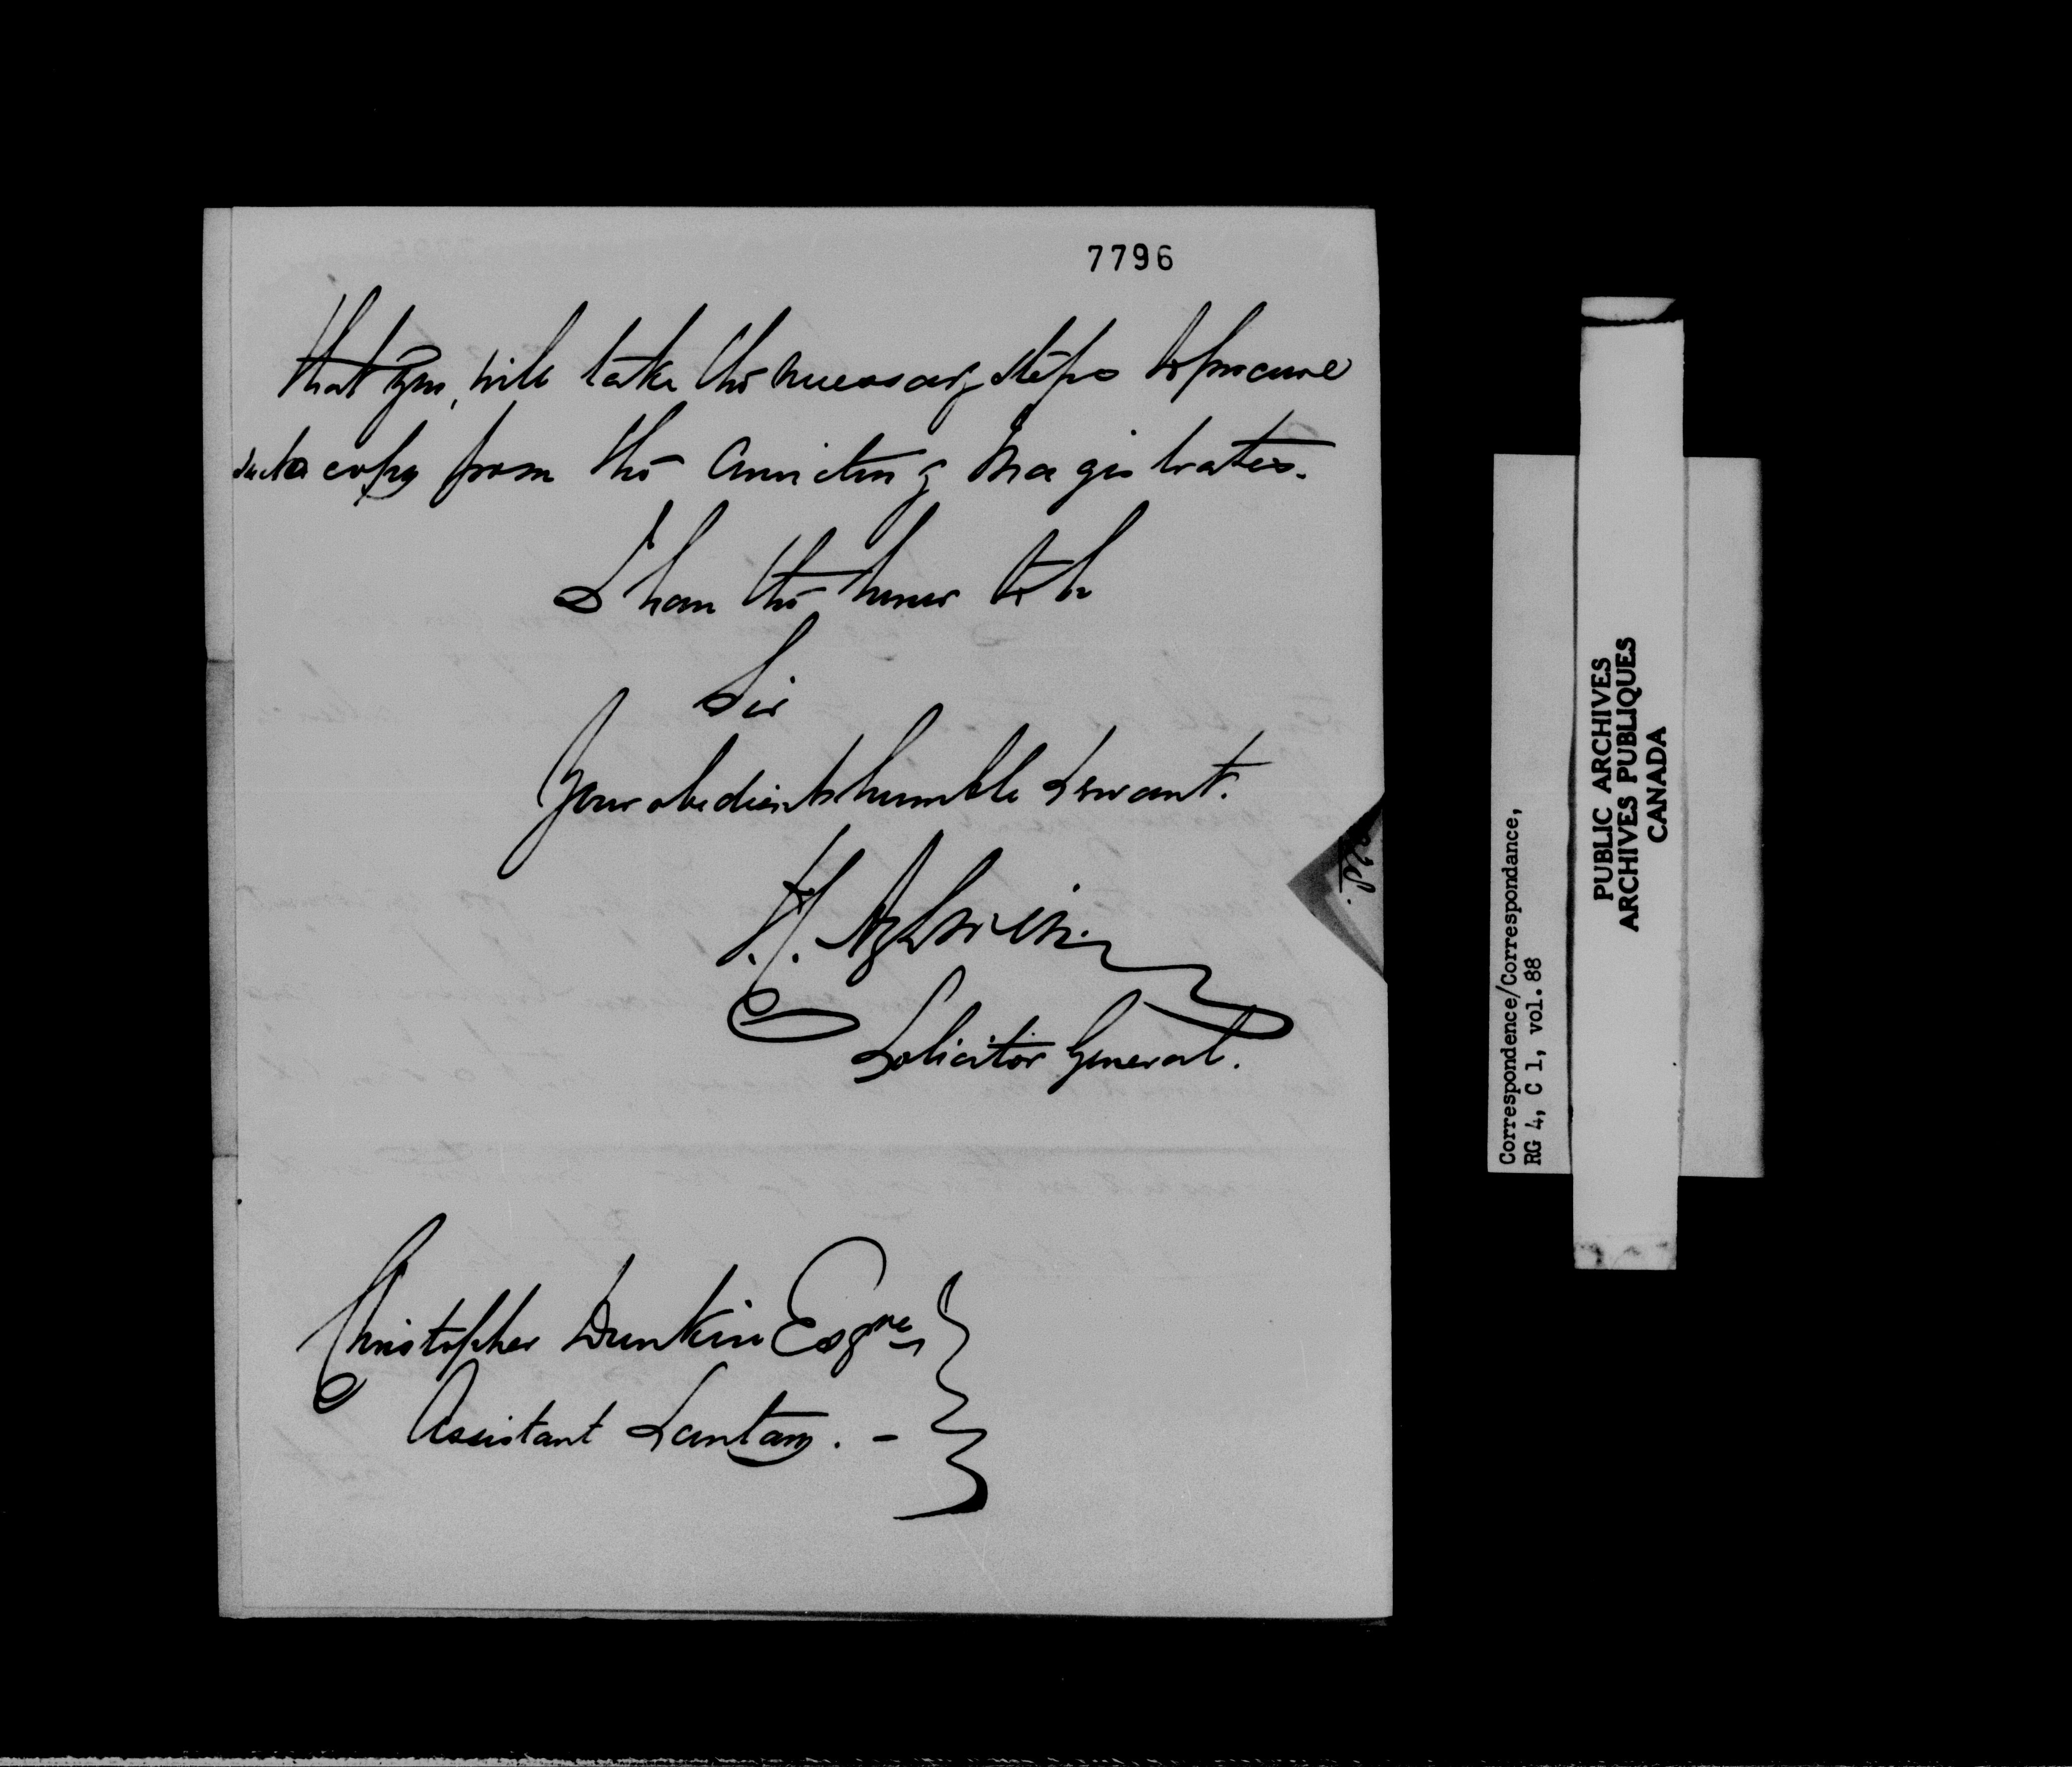 7796
that you, will take the necessary steps to procure
such a copy from the convicting Magistrates.
I have the honor to be
Sir
Your obedient humble Servant.
T. C. Aylwin
Solicitor General.
Christopher Dunkin Esqre
Assistant Secretary. -
Correspondence/Correspondance,
RG 4, C 1, vol. 88
PUBLIC ARCHIVES
ARCHIVES PUBLIQUES
CANADA